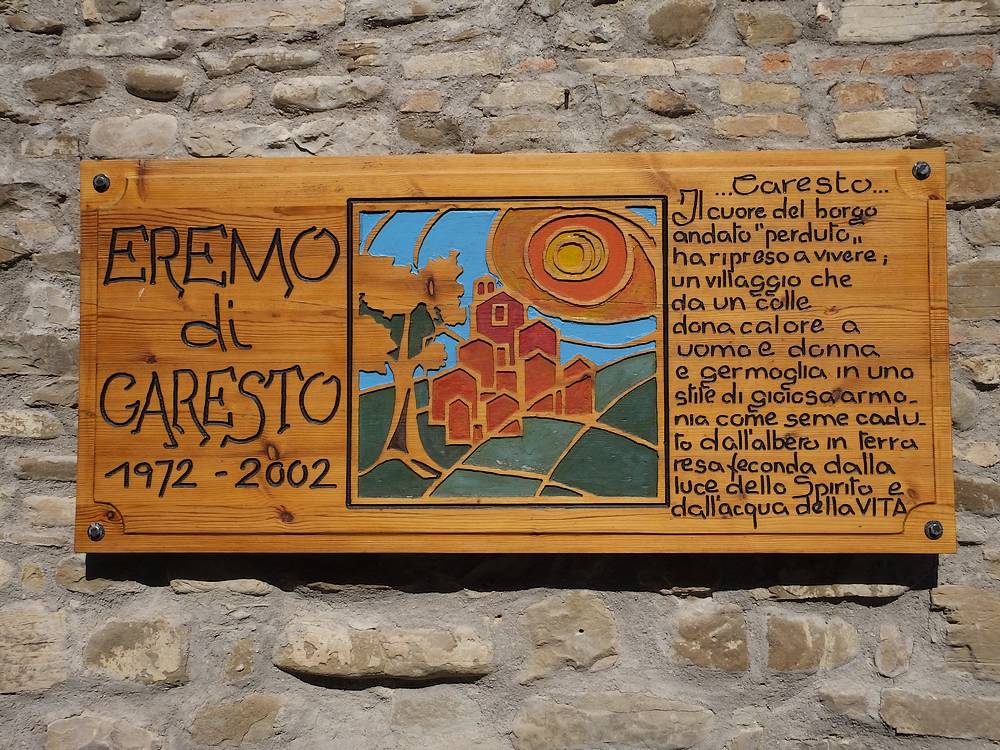 EREMO
di
CARESTO
1972 - 2002
...Caresto...
Il cuore del borgo
andato "perduto"
ha ripreso a vivere;
un villaggio che
da un colle
dona calore a
uomo e donna
e germoglia in uno
stile di gioiosa armo-
nia come seme cadu-
to dall'albero in terra
resa feconda dalla
luce dello Spirito e
dall'acqua della VITA